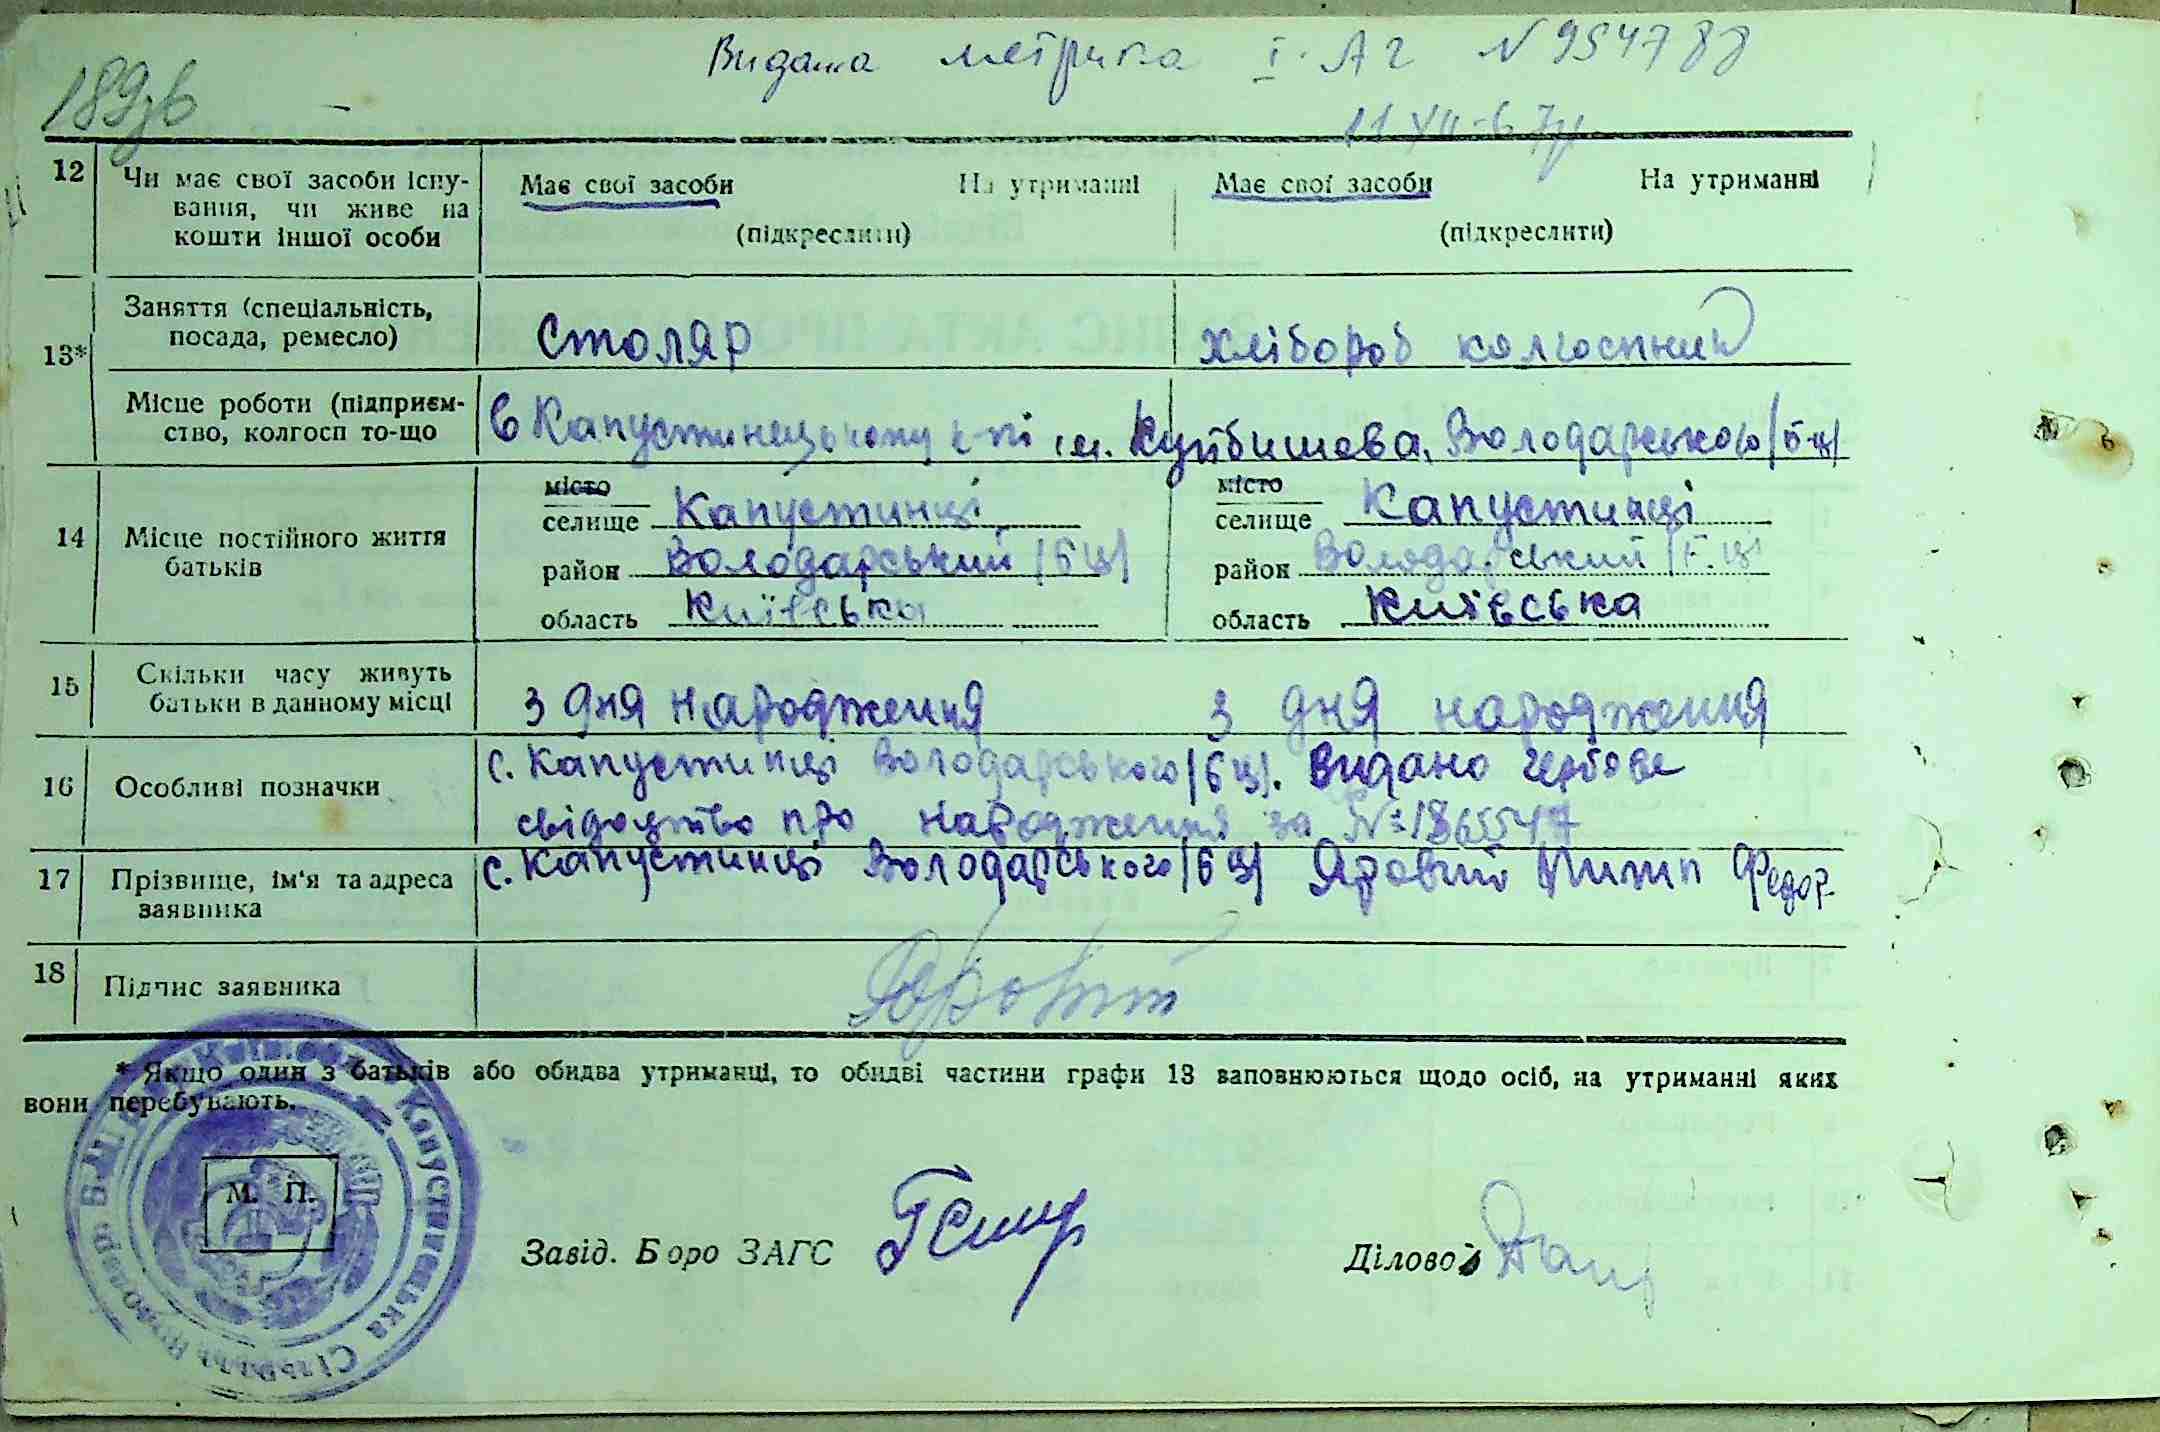 Видана метрика І-АГ N 954788
189зв
11 XII-67р
12 Чи має свої засоби існу-
вання, чи живе на
кошти іншої особи
Має свої засоби На утриманні
(підкреслити)
Має свої засоби На утриманні
(підкреслити)
13*
Заняття (спеціальність,
посада, ремесло)
столяр
хлібороб колгоспник
Місце роботи (підприєм-
ство, колгосп то-що
в Капустинецькому к-пі ім. Куйбишева, Володарського /б-ц/
14 Місце постійного життя
батьків
місто
селище Капустинці
район Володарський /б ц/
область Київська
місто
селище Капустинці
район Володарський /б.ц/
область Київська
15 Скільки часу живуть
батьки в данному місці
з дня народження
з дня народження
16 Особливі позначки
с. Капустинці Володарського /б ц/. Видано гербове
свідоцтво про народження за №
17 Прізвище, ім'я та адреса
заявника
с. Капустинці Володарського /б ц/ Яровий Федор.
18 Підпис заявника
Яровий
* Якщо один з батьків або обидва утриманці, то обидві частини графи 13 заповнюються щодо осіб, на утриманні яких
вони перебувають.
Капустинецька Сільська
М. П.
Завід. Бюро ЗАГС
Діловод